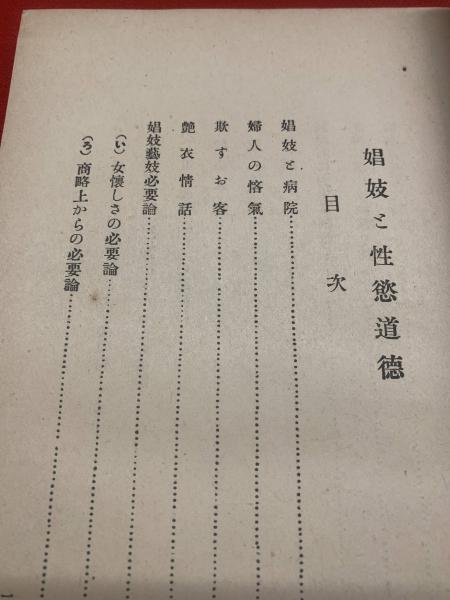 娼妓と性慾道德
目次
娼妓と病院
婦人の悋氣
欺すお客
艶衣情話
娼妓藝妓必要論
(い)女懷しさの必要論
(ろ)商略上からの必要論